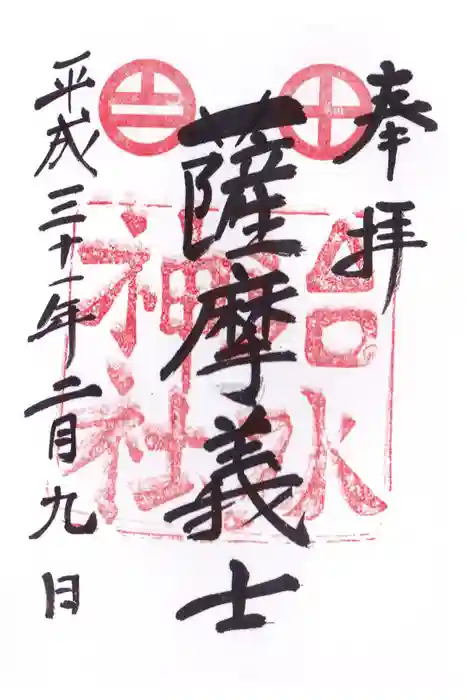 奉拝
薩摩義士
平成三十一年二月九日
治水神社